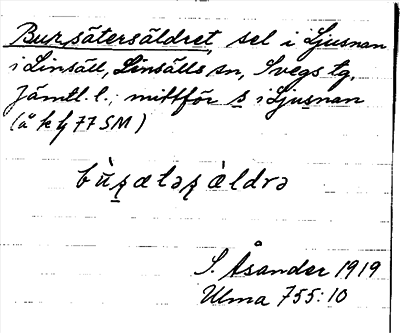 Bursätersäldret, sel i Ljusnan
i Linsäll, Linsälls sn, Svegs tg,
Jämtl. l.; mittför s i Ljusnan
(å k bj 77 SM)
bù̀ʂæləʂ àldrə
S. Åsander 1919
Ulma 755:10